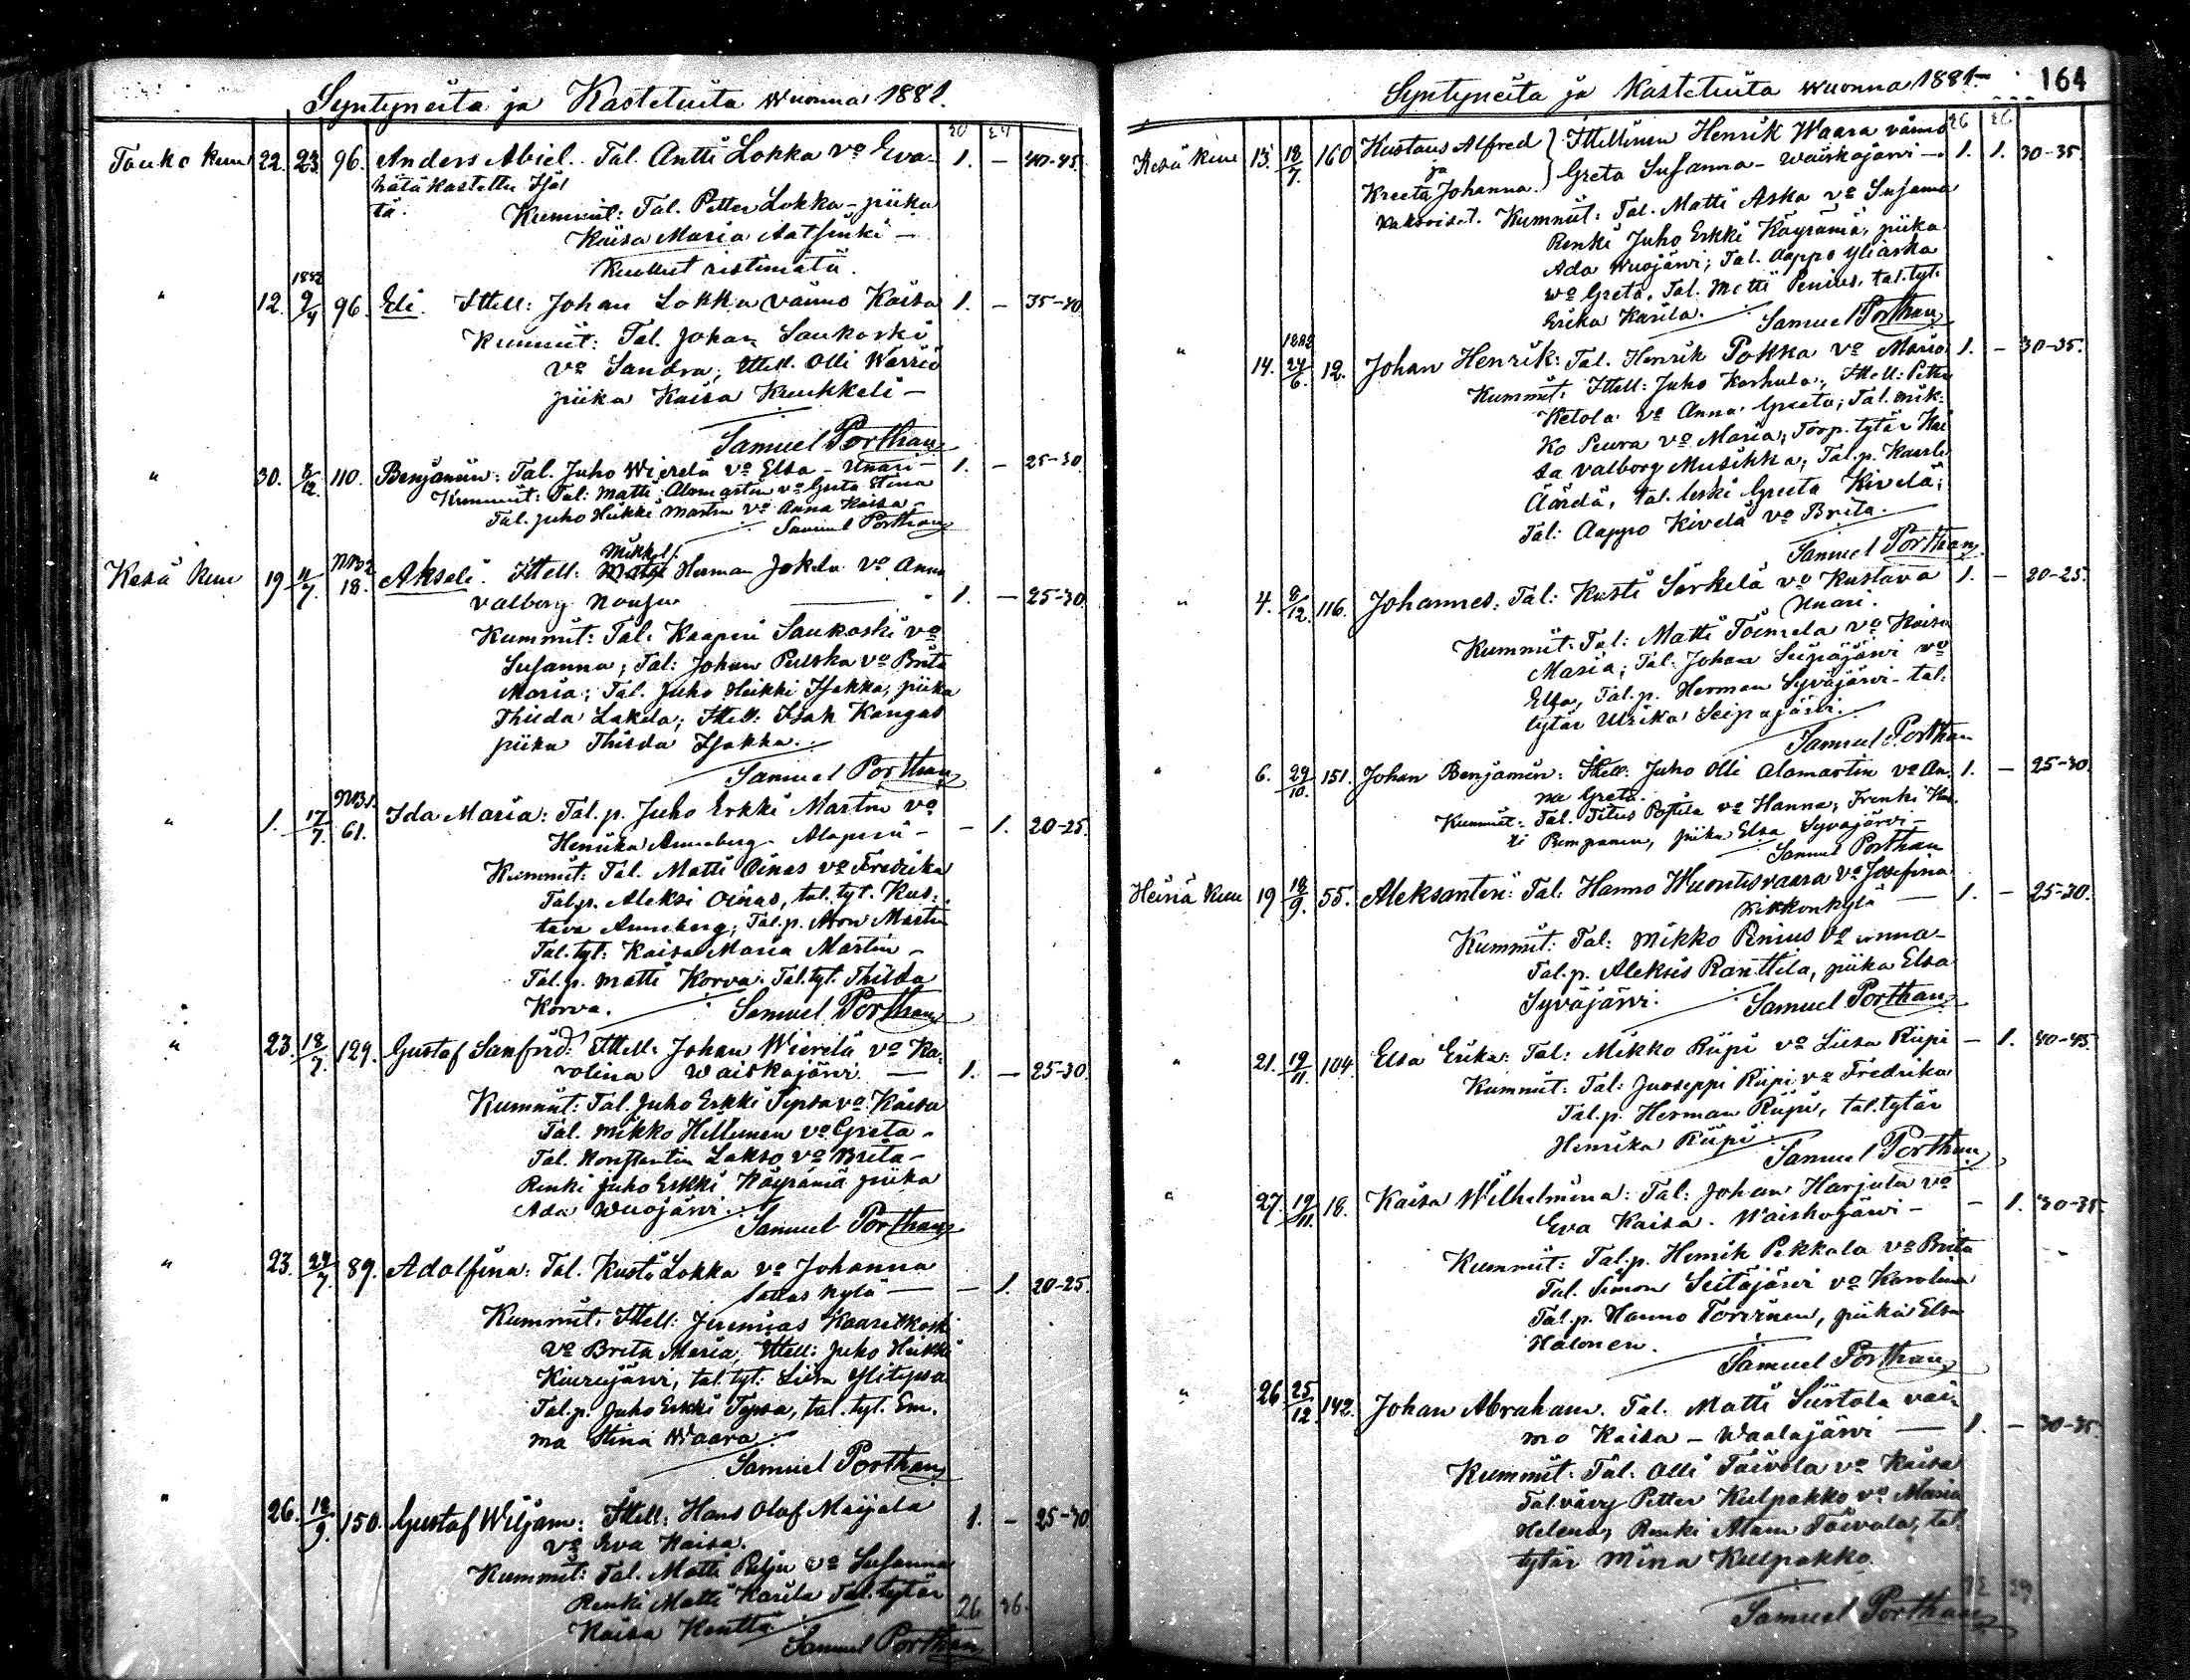 Syntyneitä ja Kastetuita wuonna 1881.
Touko kuu 22. 23. 96. Anders Abiel. Tal. Antti Lokka vo Eva 1. — 40-45.
hätä kastettu Isäl
tä. Kummit: Tal. Petter Lokka - piika
Kaisa Maria Aatsinki —
Kuollut ristimätä.
1882
" 12. 9/4 96. Eli. Ittell: Johan Lokka vaimo Kaisa 1. — 35-40
Kummit: Tal. Johan Saukoski
vo Sandra; Ittell. Olli Wärriö
piika Kaisa Kunkkeli —
Samuel Porthan
" 30. 3/12. 110. Benjamin: Tal. Juho Wierelä vo Elsa - Unari — 1. — 25-30.
Kummit: Tal: Matti Alamartin vo Greta Stina
Tal. Juho Heikki Martin vo Anna Kaisa —
Samuel Porthan
Mikkel
Kesä kuu 19 11/7. 18. Akseli. Ittell: Herman Jokela vo Anna
Valborg 1. — 25-30
Kummit: Tal: Kaaperi Saukoski vo
Susanna; Tal: Johan Pulska vo Brita
Maria; Tal. Juho Heikki Isakka, piika
Thilda Lakela; Ittell: Isak Kangas
piika Thilda Isakka.
Samuel Porthan
" 1. 17/7. 61. Ida Maria: Tal. p. Juho Erkki Martin vo
Henrika Anneberg - Alaperä — — 1. 20-25.
Kummit: Tal. Matti Oinas vo Fredrika
Tal.p. Aleksi Oinas, tal. tyt. Kus-
tava Anneberg; Tal. p. Aron Martin
Tal. tyt: Kaisa Maria Martin —
Tal. p. Matti Korva. Tal. tyt. Thilda
Korva. Samuel Porthan
" 23. 18/7. 129. Gustaf Sanfrid: Ittell: Johan Wierelä vo Ka-
rolina Waiskojärwi — 1. — 25-30.
Kummit: Tal. Juho Erkki Tepsa vo Kaisa
Tal. Mikko Hiltunen vo Greta —
Tal. Konstantin Lakso vo Brita —
Renki Juho Erkki Käyrämä piika
Ada Wuojärwi.
Samuel Porthan
" 23. 24/7. 89. Adolfina: Tal. Kusti Lokka vo Johanna
Sattas kylä — — 1. 20-25.
Kummit. Ittell: Jeremias Kaaretkoski
vo Brita Maria, Ittell: Juho Heikki
Kiurujärwi, tal. tyt. Liisa Ylitepsa
Tal.p. Juho Erkki Tepsa, tal. tyt. Em-
ma Stina Waara.
Samuel Porthan
" 26. 18/9. 150. Gustaf Wiljam: Ittell: Hans Olof Maijala 1. — 25-30
vo Eva Kaisa.
Kummit: Tal. Matti Palju vo Susanna
Renki Matti Karila Tal. tytär
Kaisa Hentta 26 36.
Samuel Porthan
Syntyneitä ja Kastetuita wuonna 1881. 164
Kesä kuu 15. 18/7. 160 Kustaus Alfred Ittellinen Henrik Waara vaimo 1. 1. 30-35.
ja Greta Susanna - Waiskojärwi —
Kreeta Johanna.
Kaksoiset. Kummit: Tal. Matti Aska vo Susanna
Renki Juho Erkki Käyrämä, piika
Ada Wuojärwi; Tal. Aappo Yliaska
wo Greta, Tal. Matti Penius, tal. tyt.
Erika Karila. Samuel Porthan
1882
" 14. 24/6. 12. Johan Henrik: Tal. Henrik Pokka vo Maria 1. — 30-35.
Kummit: Ittell: Juho Karhula; Ittell: Petter
Ketola vo Anna Greeta; Tal. Mik-
ko Peura vo Maria; Torp. tytär Kai
sa Valborg Musikka; Tal. p. Kaarle
Äärelä, tal. leski Greeta Kivelä;
Tal: Aappo Kivelä vo Brita.
Samuel Porthan
" 4. 8/12. 116. Johannes: Tal: Kusti Särkelä vo Kustava 1. — 20-25.
Unari.
Kummit: Tal: Matti Toimela vo Kaisa
Maria; Tal: Johan Seipäjärwi vo
Elsa, Tal. p. Herman Syväjärwi - tal.
tytär Ulrika Seipäjärwi.
Samuel Porthan
" 6. 29/10. 151. Johan Benjamin: Ittell. Juho Olli Alamartin vo An- 1. — 25-30.
na Greta.
Kummit: Tal: Titus Postila vo Hanna; Frenki
Pumpanen, piika Elsa Syväjärvi —
Samuel Porthan
Heinä kuu 19 18/9. 55. Aleksanteri: Tal: Hanno Wuontisvaara vo Josefina
Kirkonkylä — 1. — 25-30.
Kummit: Tal: Mikko Penius vo Anna —
Tal. p. Aleksis Ranttila, piika Elsa
Syväjärwi. Samuel Porthan
" 21. 19/11. 104. Elsa Erika: Tal: Mikko Riipi vo Liisa Riipi — 1. 40-45.
Kummit: Tal: Juoseppi Riipi vo Fredrika
Tal. p. Herman Riipi, tal. tytär
Henrika Riipi.
Samuel Porthan
" 27. 19/11. 18. Kaisa Wilhelmina: Tal: Johan Harjula vo
Eva Kaisa. Waiskojärwi — — 1. 30-35.
Kummit: Tal. p. Henrik Pekkala vo Brita
Tal. Simon Seitäjärwi vo Karolina
Tal. p. Hanno Torvinen, piika Elsa
Halonen.
Samuel Porthan
" 26 25/12. 142. Johan Abraham. Tal. Matti Siirtola vai-
mo Kaisa — Waalajärwi — 1. — 30-35.
Kummit: Tal: Olli Toivola vo Kaisa
Tal. vävy Petter Kulpakko vo Maria
Helena, Renki Atam Toivola, tal.
tytär Mina Kulpakko
Samuel Porthan